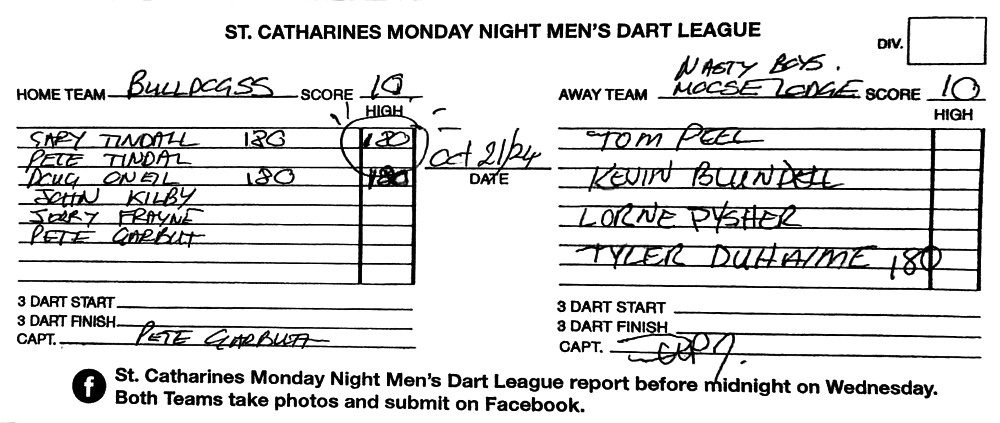 ST. CATHARINES MONDAY NIGHT MEN'S DART LEAGUE
DIV.
HOME TEAM BULLDOGSS SCORE 10
HIGH
NASTY BOYS.
AWAY TEAM MOOSE LODGE SCORE 10
HIGH
GARY TINDALL 180 180
PETE TINDAL
DOUG ONEIL 180 180
JOHN KILBY
JERRY FRAYNE
PETE GARBUT
Oct 21/24
DATE
TOM PEEL
KEVIN BLUNDELL
LORNE PYSHER
TYLER DUHAIME 180
3 DART START
3 DART FINISH
CAPT. PETE GARBUTT
3 DART START
3 DART FINISH
CAPT.
f St. Catharines Monday Night Men's Dart League report before midnight on Wednesday.
Both Teams take photos and submit on Facebook.